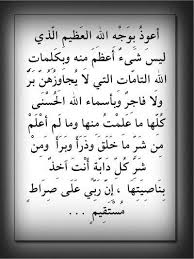 أعوذُ بوَجْهِ الله العظيم الَّذي
ليس شَيءٌ أعظمَ منه وبكلمات
الله التامّات التي لا يُجاوزُهنَ بَرٌّ
ولا فاجرٌ وبأسماء الله الحُسْنى
كُلِّها ما عَلمتُ منها وما لم أعْلَمْ
من شَرِّ ما خَلَقَ وَذَرأَ وبَرَأَ ومنْ
شَرِّ كلِّ دابّة أنت آخذٌ
بناصيتَها ، إنَّ رَبِّي عَلى صِراطٍ
مُسْتَقِيمٍ ...